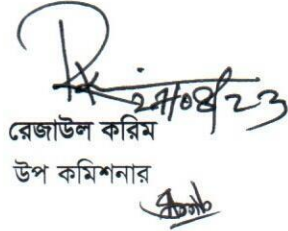 27/08/23
রেজাউল করিম
উপ কমিশনার